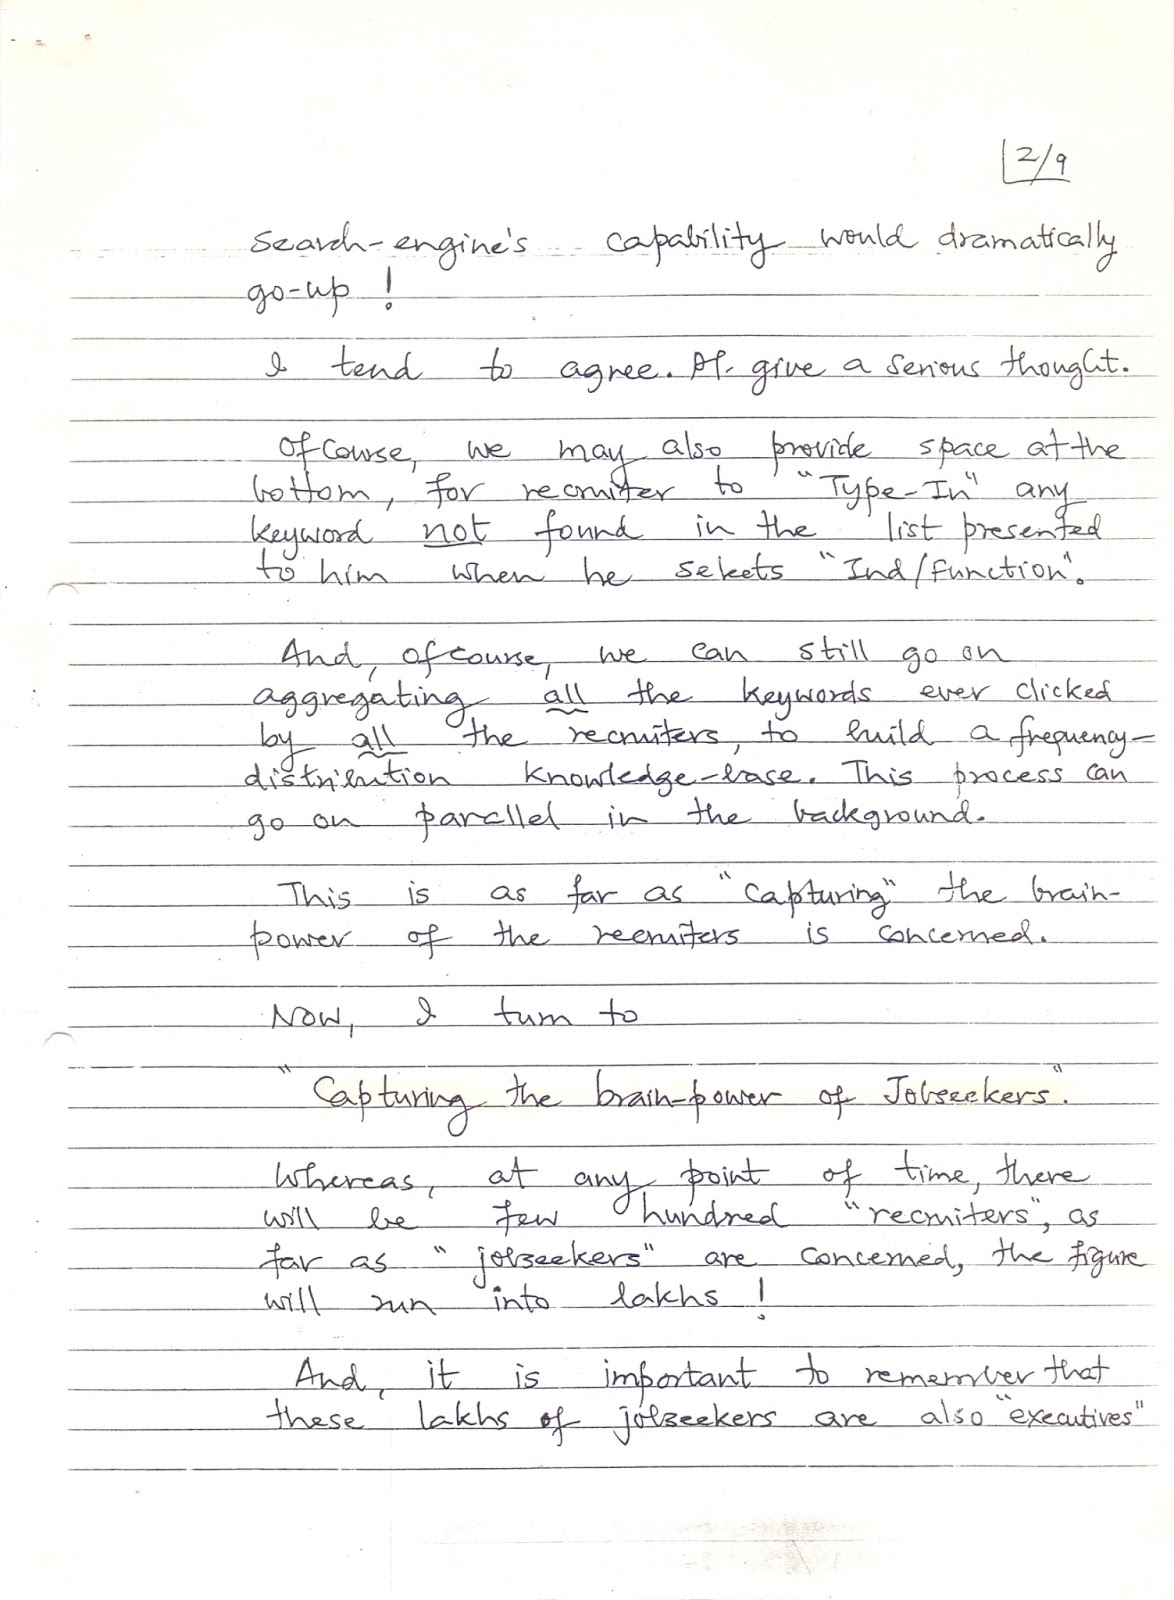 2/9
search-engine's capability would dramatically
go-up !
I tend to agree. Pl. give a serious thought.
Of course, we may also provide space at the
bottom, for recruiter to "Type-In" any
keyword not found in the list presented
to him when he selects "Ind/Function".
And, of course, we can still go on
aggregating all the keywords ever clicked
by all the recruiters, to build a frequency-
distribution knowledge-base. This process can
go on parallel in the background.
This is as far as "capturing" the brain-
power of the recruiters is concerned.
Now, I turn to
"Capturing the brain-power of Jobseekers".
Whereas, at any point of time, there
will be few hundred "recruiters", as
far as "jobseekers" are concerned, the figure
will run into lakhs !
And, it is important to remember that
these lakhs of jobseekers are also "executives"